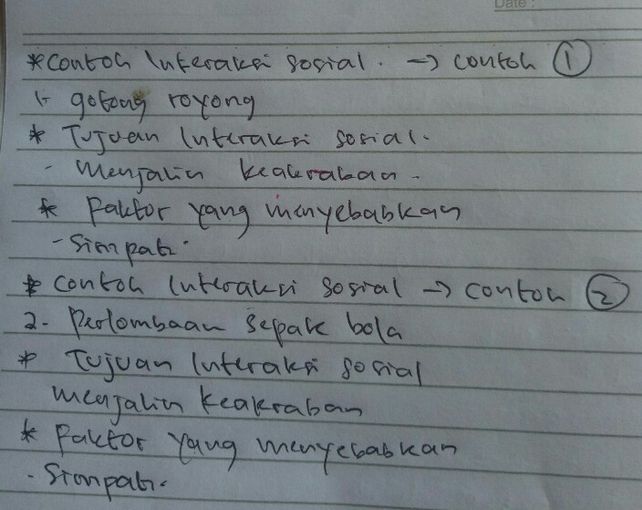 Date :
*Contoh Interaksi sosial. → contoh ①
1. gotong royong
* Tujuan Interaksi sosial.
- Menjalin keakraban.
* Faktor yang menyebabkan
- Simpati.
* Contoh Interaksi sosial → contoh ②
2. Perlombaan sepak bola
* Tujuan Interaksi sosial
menjalin keakraban
* Faktor yang menyebabkan
- Simpati.